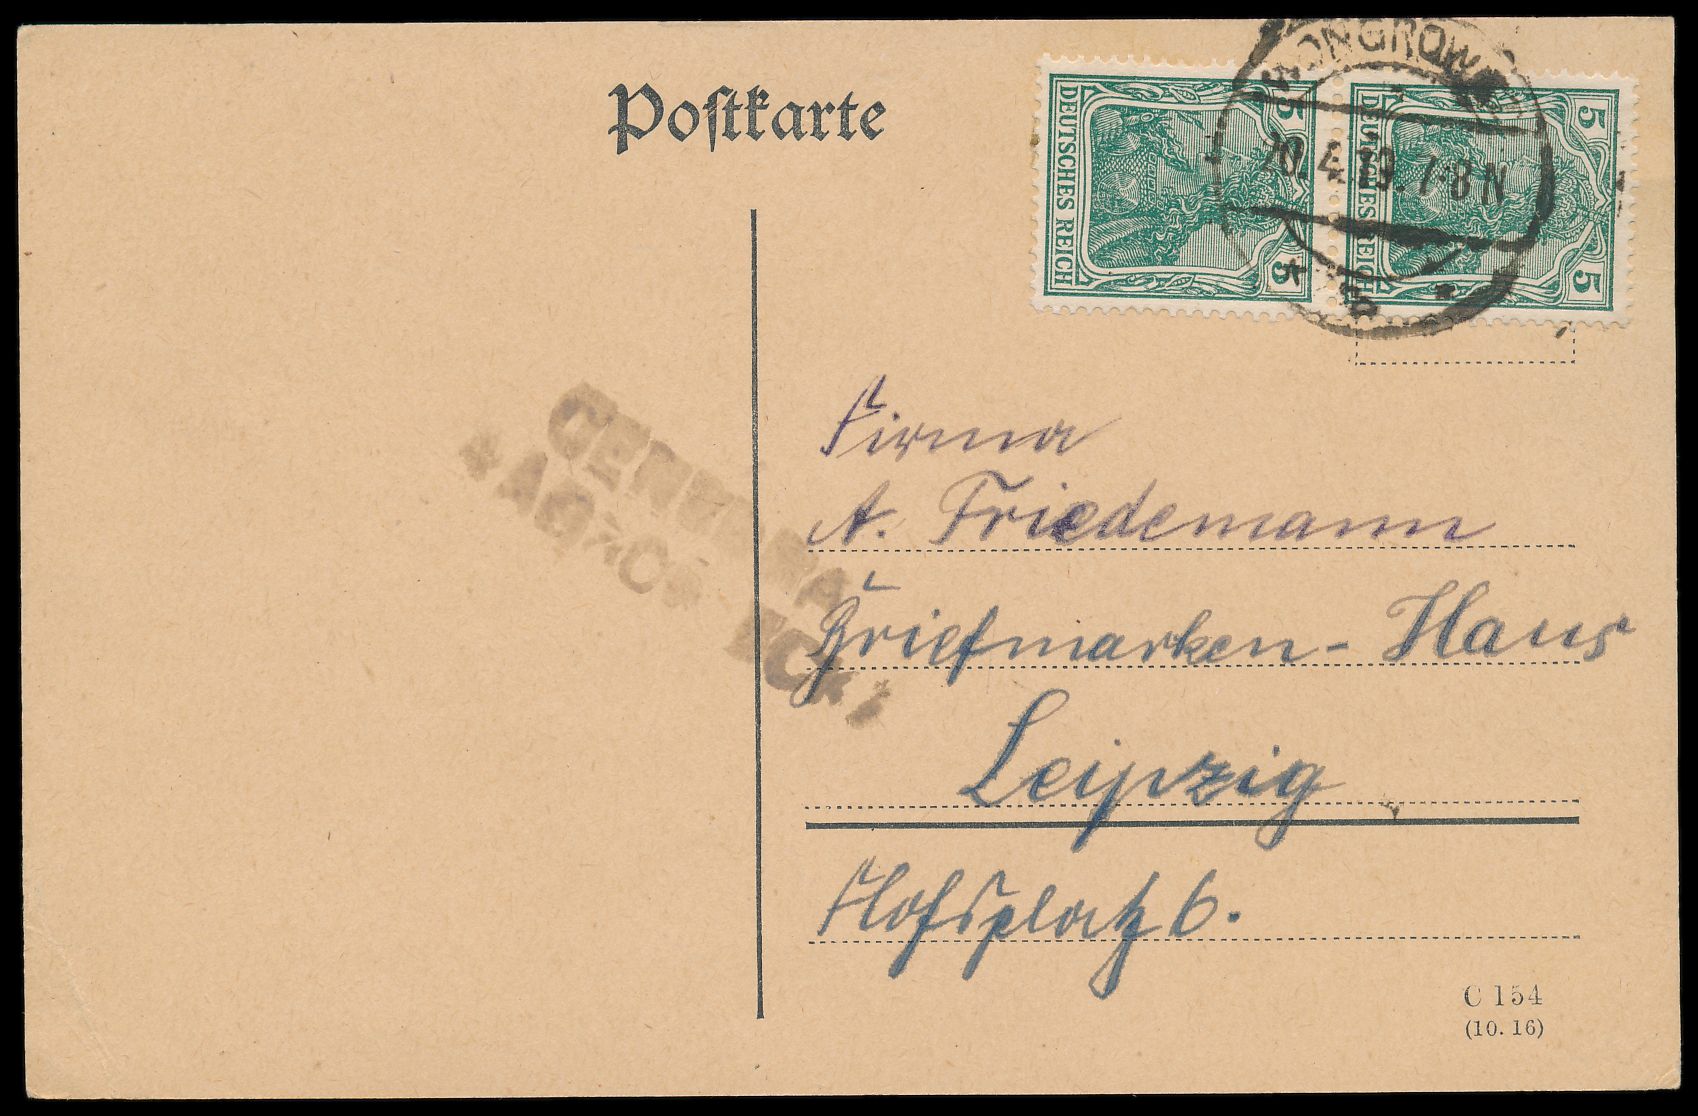 Postkarte
DEUTSCHES REICH
5
5
DEUTSCHES REICH
5
5
WONGROWITZ
20.4.19.7-8N
* b *
Firma
A. Friedemann
Briefmarken-Haus
Leipzig
Hofsplatz 6.
C 154
(10. 16)